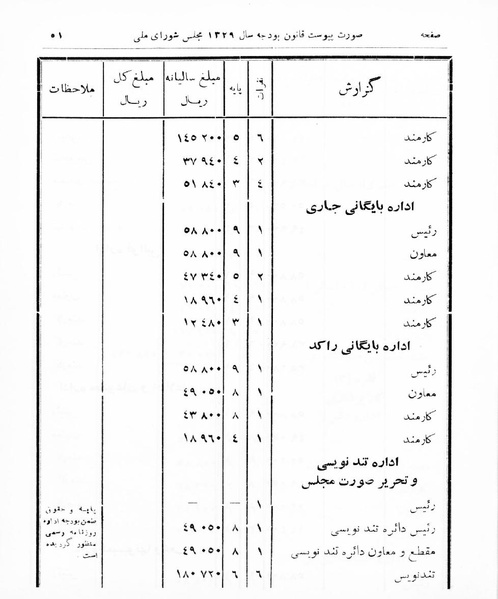 صفحه صورت پیوست قانون بودجه سال ۱۳۲۹ مجلس شورای ملی ۵۱
گزارش نفرات پایه مبلغ سالیانه ریال مبلغ کل ریال ملاحظات
کارمند ۶ ۵ ۱۴۵ ۲۰۰
کارمند ۲ ۴ ۳۷ ۹۴۰
کارمند ۴ ۳ ۵۱ ۸۴۰
اداره بایگانی جاری
رئیس ۱ ۹ ۵۸ ۸۰۰
معاون ۱ ۹ ۵۸ ۸۰۰
کارمند ۲ ۵ ۴۷ ۳۴۰
کارمند ۱ ۴ ۱۸ ۹۶۰
کارمند ۱ ۳ ۱۲ ۴۸۰
اداره بایگانی راکد
رئیس ۱ ۹ ۵۸ ۸۰۰
معاون ۱ ۸ ۴۹ ۰۵۰
کارمند ۱ ۸ ۴۳ ۸۰۰
کارمند ۱ ۴ ۱۸ ۹۶۰
اداره تند نویسی
و تحریر صورت مجلس
رئیس ۱ — —
پایه و حقوق
ضمن بودجه اداره
روزنامه رسمی
منظور گردیده
است
رئیس دائره تند نویسی ۱ ۸ ۴۹ ۰۵۰
مقطع و معاون دائره تند نویسی ۱ ۸ ۴۹ ۰۵۰
تندنویس ۶ ۶ ۱۸۰ ۷۲۰